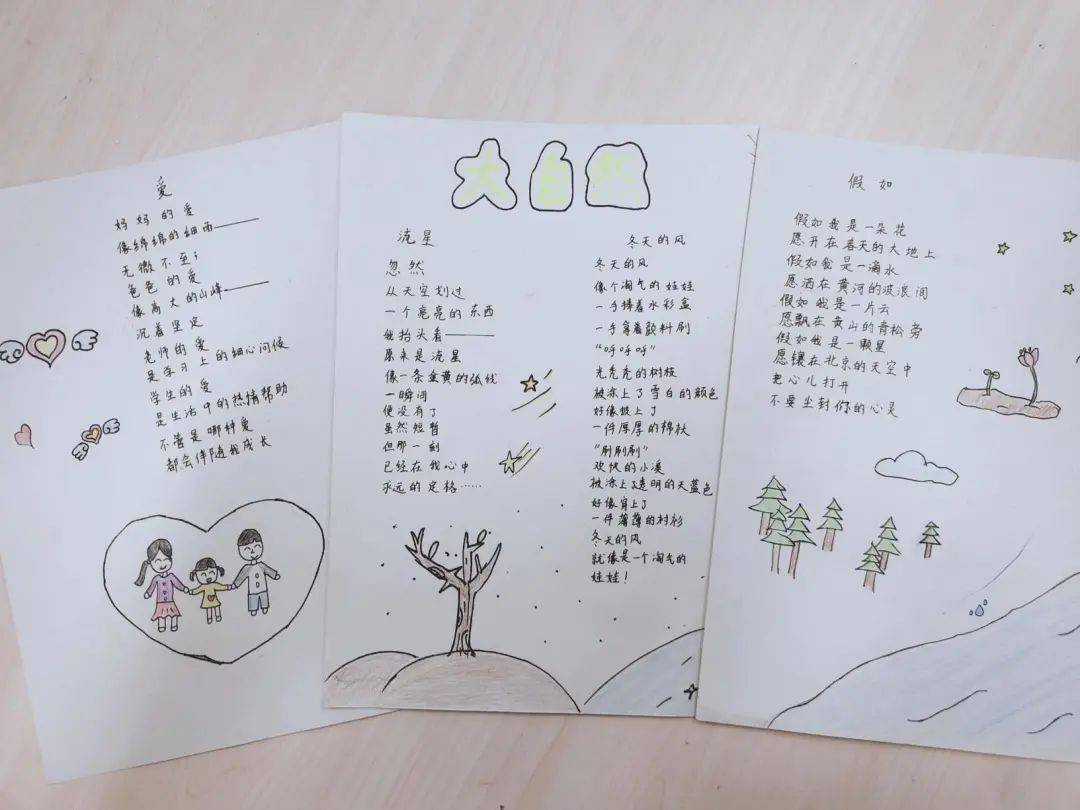 爱
妈妈的爱
像绵绵的细雨——
无微不至;
爸爸的爱
像高大的山峰——
沉着坚定
老师的爱
是学习上的细心问候
学生的爱
是生活中的热情帮助
不管是哪种爱
都会伴随我成长
大自然
流星
忽然
从天空划过
一个亮亮的东西
我抬头看——
原来是流星
像一条金黄的弧线
一瞬间
便没有了
虽然短暂
但那一刻
已经在我心中
永远的定格……
冬天的风
冬天的风
像个淘气的娃娃
一手捧着水彩盒
一手拿着颜料刷
“呼呼呼”
光秃秃的树枝
被涂上了雪白的颜色
好像披上了
一件厚厚的棉袄
“刷刷刷”
欢快的小溪
被涂上了透明的天蓝色
好像穿上了
一件薄薄的衬衫
冬天的风
就像是一个淘气的
娃娃!
假如
假如我是一朵花
愿开在春天的大地上
假如我是一滴水
愿洒在黄河的波浪间
假如我是一片云
愿飘在黄山的青松旁
假如我是一颗星
愿镶在北京的天空中
把心儿打开
不要尘封你的心灵